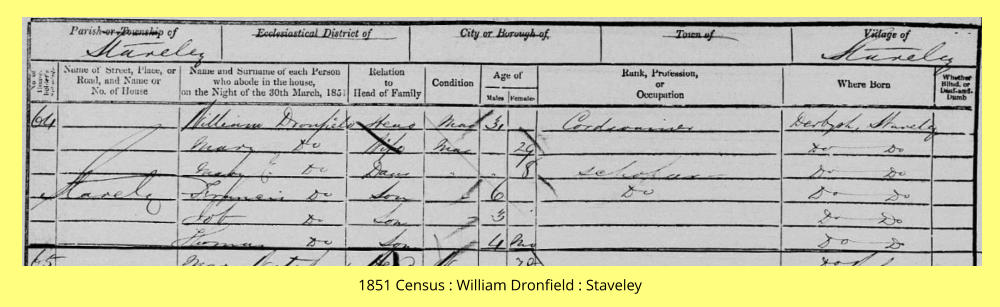 Parish or Township of Ecclesiastical District of City or Borough of Town of Village of
Staveley Staveley
No. of House-holder's Schedule Name of Street, Place, or Road, and Name or No. of House Name and Surname of each Person who abode in the house, on the Night of the 30th March, 1851 Relation to Head of Family Condition Age of Males Females Rank, Profession, or Occupation Where Born Whether Blind, or Deaf-and-Dumb
64 William Dronfield Head Mar 3 Cordwainer Derbysh, Staveley
Mary Do Wife Mar 29 Do Do
Do Daur 8 Scholar Do Do
Staveley Francis Do Son 6 Do Do Do
Job Do Son 3 Do Do
Thomas Do Son 4 Mo Do Do
65
1851 Census : William Dronfield : Staveley